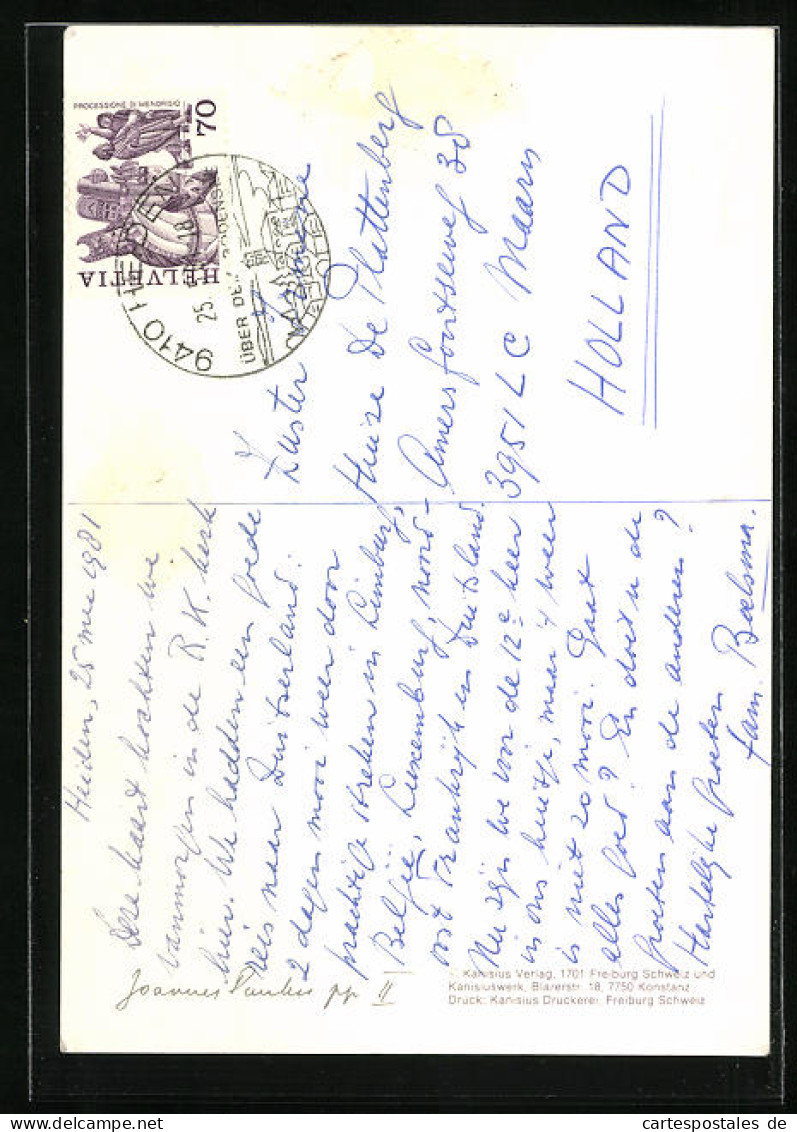 PROCESSIONE DI MENDRISIO
70
HELVETIA
9410 HEIDEN
25.
ÜBER DEM BODENSEE
Heiden, 25 mei 1981
Deze kaart kochten we
vanmorgen in de R.K. kerk
hier. We hadden een goede
reis naar Zwitserland.
2 dagen mooi weer door
prachtige streken in Limburg,
België, Luxemburg, noord-
oost Frankrijk en Duitsland.
Nu zijn we voor de 12e keer
in ons huisje, maar 't weer
is niet zo mooi. Gaat
alles goed? En doet u de
groeten aan de anderen?
Hartelijke groeten
fam. Boelsma.
Zuster
Huize De Plattenberg
Amersfoortseweg 38
3951 LC Maarn
HOLLAND
Joannes Paulus pp. II
© Kanisius Verlag, 1701 Freiburg Schweiz und
Kanisiuswerk, Blarerstr. 18, 7750 Konstanz
Druck: Kanisius Druckerei, Freiburg Schweiz
cartespostales.de